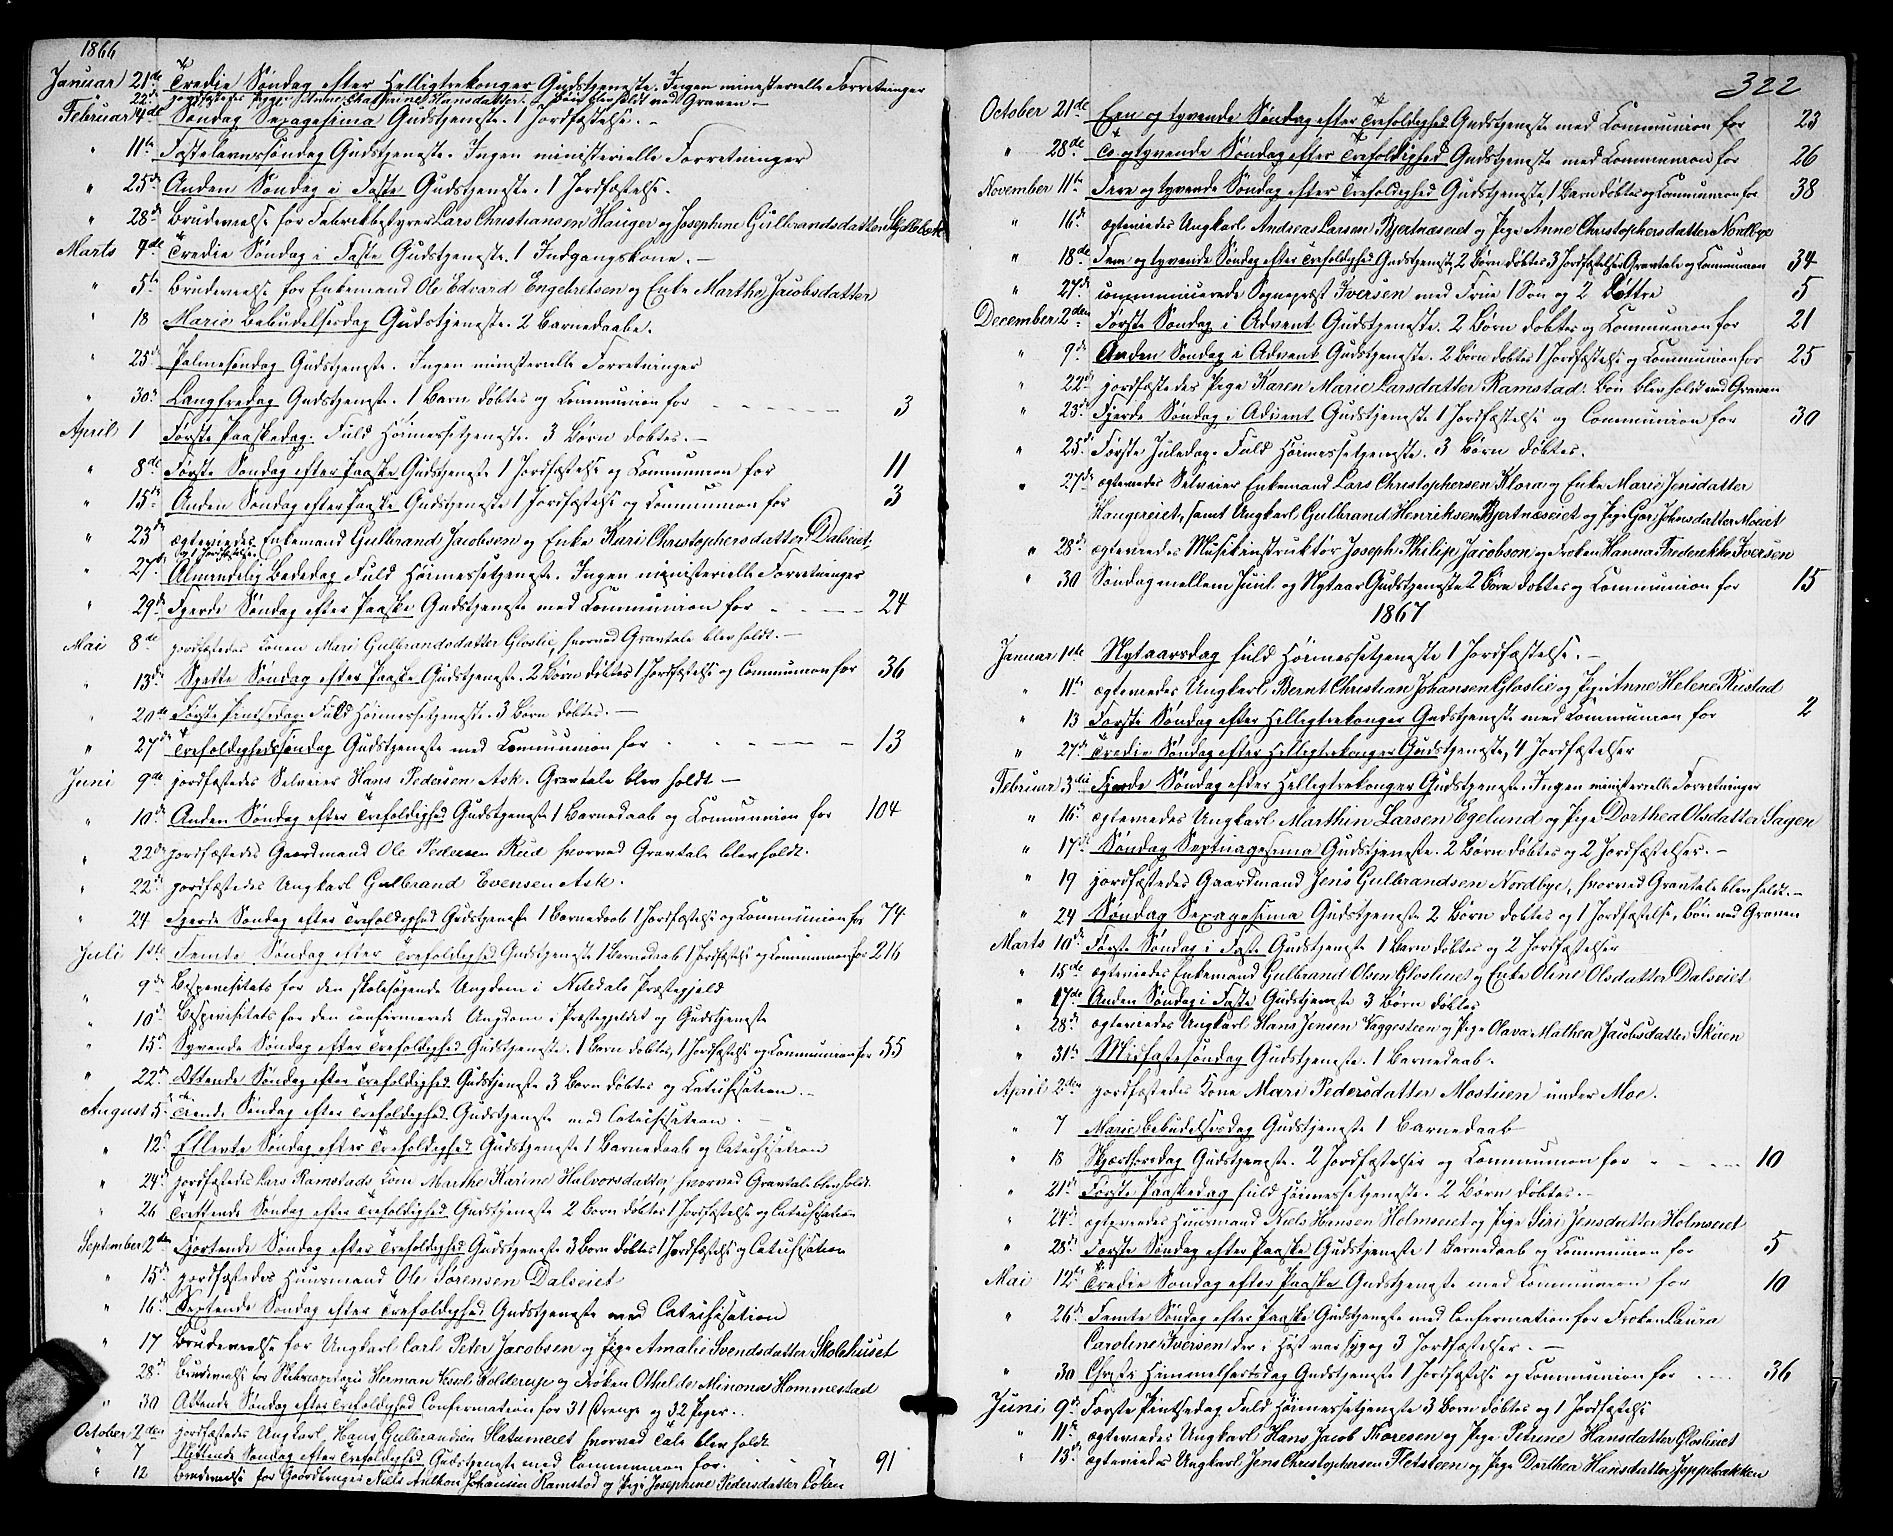 1866
Januar 21de Tredie Søndag efter Helligtrekonger Gudstjeneste. Ingen ministerielle Forretninger
22de jordfæstedes Pige Anne Cathrine Hansdatter. Bøn blev holdt ved Graven —
Februar 4de Søndag Sexagesima Gudstjeneste. 1 Jordfæstelse. —
" 11te Fastelavnssøndag Gudstjeneste. Ingen ministerielle Forretninger
" 25de Anden Søndag i Faste Gudstjeneste. 1 Jordfæstelse.
" 28de Brudevielse for Fabrikbestyrer Lars Christiansen Hauger og Josephine Gulbrandsdatter
Marts 4de Tredie Søndag i Faste Gudstjeneste. 1 Indgangskone. —
" 5te Brudevielse for Enkemand Ole Edvard Engebretsen og Enke Marthe Jacobsdatter
" 18 Mariæ Bebudelsesdag Gudstjeneste. 2 Barnedaabe.
" 25de Palmesøndag Gudstjeneste. Ingen ministerielle Forretninger
" 30de Langfredag Gudstjeneste. 1 Barn døbtes og Communion for 3
April 1 Første Paaskedag. Fuld Høimessetjeneste. 3 Børn døbtes. —
" 8de Første Søndag efter Paaske Gudstjeneste 1 Jordfæstelse og Communion for 11
" 15de Anden Søndag efter Paaske Gudstjeneste 1 Jordfæstelse og Communion for 3
" 23de ægteviedes Enkemand Gulbrand Jacobsen og Enke Kari Christophersdatter Dalseiet,
og 1 Jordfæstelse.
" 27de Almindelig Bededag Fuld Høimessetjeneste. Ingen ministerielle Forretninger
" 29de Fjerde Søndag efter Paaske Gudstjeneste med Communion for 24
Mai 8de jordfæstedes Konen Mari Gulbrandsdatter Gloslie, hvorved Gravtale blev holdt. —
" 13de Sjette Søndag efter Paaske Gudstjeneste. 2 Børn døbtes 1 Jordfæstelse og Communion for 36
" 20de Første Pintsedag. Fuld Høimessetjeneste. 3 Børn døbtes. —
" 27de Trefoldighedssøndag Gudstjeneste med Communion for 13
Juni 9de jordfæstedes Selveier Hans Pedersen Ask. Gravtale blev holdt —
" 10de Anden Søndag efter Trefoldighed Gudstjeneste 1 Barnedaab og Communion for 104
" 22de jordfæstedes Gaardmand Ole Pedersen Rud hvorved Gravtale blev holdt.
" 22de jordfæstedes Ungkarl Gulbrand Evensen Ask.
" 24 Fjerde Søndag efter Trefoldighed Gudstjeneste 1 Barnedaab 1 Jordfæstelse og Communion for 74
Juli 1ste Femte Søndag efter Trefoldighed Gudstjeneste 1 Barnedaab 1 Jordfæstelse og Communion for 216
" 9de Bispevisitats for den skolesøgende Ungdom i Nitedals Præstegjeld
" 10de Bispevisitats for den confirmerede Ungdom i Præstegjeldet og Gudstjeneste
" 15de Syvende Søndag efter Trefoldighed Gudstjeneste. 1 Barn døbtes, 1 Jordfæstelse og Communion for 55
" 22de Ottende Søndag efter Trefoldighed Gudstjeneste 3 Børn døbtes og Catechisation. —
August 5te Tiende Søndag efter Trefoldighed Gudstjeneste med Catechisation. —
" 12te Ellevte Søndag efter Trefoldighed Gudstjeneste 1 Barnedaab og Catechisation
" 24de jordfæstedes Lars Ramstads Kone Marthe Karine Halvorsdatter, hvorved Gravtale blev holdt.
" 26 Trettende Søndag efter Trefoldighed Gudstjeneste 2 Børn døbtes 1 Jordfæstelse og Catechisation
September 2den Fjortende Søndag efter Trefoldighed Gudstjeneste 3 Børn døbtes 1 Jordfæstelse og Catechisation
" 15de jordfæstedes Huusmand Ole Sørensen Dalseiet
" 16de Sextende Søndag efter Trefoldighed Gudstjeneste med Catechisation
" 17 Brudevielse for Ungkarl Carl Peter Jacobsen og Pige Amalie Svendsdatter Skolehuset
" 28de Brudevielse for Herman Kolderup og Frøken Othelde Minona Hommestad
" 30 Attende Søndag efter Trefoldighed Confirmation for 31 Drenge og 32 Piger.
October 2den jordfæstedes Ungkarl Hans Gulbrandsen Slatumeiet hvorved Tale blev holdt
" 7 Nittende Søndag efter Trefoldighed Gudstjeneste med Communion for 91
" 12 Brudevielse for Gaarddrenger Niels Anthon Johansen Ramstad og Pige Josephine Pedersdatter Løken
322
October 21de Een og tyvende Søndag efter Trefoldighed Gudstjeneste med Communion for 23
" 28de To og tyvende Søndag efter Trefoldighed Gudstjeneste med Communion for 26
November 11te Fire og tyvende Søndag efter Trefoldighed Gudstjeneste, 1 Barn døbtes og Communion for 38
" 16de ægteviedes Ungkarl Andreas Larsen Bjertnæseiet og Pige Anne Christophersdatter Nordbye
" 18de Fem og tyvende Søndag efter Trefoldighed Gudstjeneste, 2 Børn døbtes 3 Jordfæstelser Gravtale og Communion 34
" 27de communicerede Sognepræst Iversen med Frue 1 Søn og 2 Døttre 5
December 2den Første Søndag i Advent Gudstjeneste. 2 Børn døbtes og Communion for 21
" 9de Anden Søndag i Advent Gudstjeneste. 2 Børn døbtes 1 Jordfæstelse og Communion for 25
" 22de jordfæstedes Pige Karen Marie Larsdatter Ramstad. Bøn blev holdt ved Graven
" 23de Fjerde Søndag i Advent Gudstjeneste 1 Jordfæstelse og Communion for 30
" 25de Første Juledag. Fuld Høimessetjeneste. 3 Børn døbtes.
" 27de ægteviedes Selveier Enkemand Lars Christophersen Klora og Enke Marie Jensdatter
Haugereiet, samt Ungkarl Gulbrand Henriksen Bjertnæseiet og Pige Gari Johnsdatter Moeiet
" 28de ægteviedes Musikinstruktør Joseph Philip Jacobsen og Frøken Hanna Frederikke Iversen
" 30 Søndag mellem Juul og Nytaar Gudstjeneste 2 Børn døbtes og Communion for 15
1867
Januar 1ste Nytaarsdag fuld Høimessetjeneste 1 Jordfæstelse. —
" 11te ægteviedes Ungkarl Bernt Christian Johansen Gloslie og Pige Anne Helene Rustad
" 13 Første Søndag efter Helligtrekonger Gudstjeneste med Communion for 2
" 27de Tredie Søndag efter Helligtrekonger Gudstjeneste, 4 Jordfæstelser
Februar 3die Fjerde Søndag efter Helligtrekonger Gudstjeneste. Ingen ministerielle Forretninger
" 16de ægteviedes Ungkarl Marthin Larsen Egelund og Pige Dorthea Olsdatter Sagen
" 17de Søndag Septuagesima Gudstjeneste. 2 Børn døbtes og 2 Jordfæstelser. —
" 19 jordfæstedes Gaardmand Jens Gulbrandsen Nordbye, hvorved Gravtale blev holdt. —
" 24 Søndag Sexagesima Gudstjeneste 2 Børn døbtes og 1 Jordfæstelse, Bøn ved Graven
Marts 10de Første Søndag i Faste Gudstjeneste 1 Barn døbtes og 2 Jordfæstelser
" 15de ægteviedes Enkemand Gulbrand Olsen Gloslieiet og Enke Oline Olsdatter Dalseiet
" 17de Anden Søndag i Faste Gudstjeneste 3 Børn døbtes
" 28de ægteviedes Ungkarl Hans Jensen Vaggesteen og Pige Olava Mathea Jacobsdatter Skøien
" 31te Midfastesøndag Gudstjeneste. 1 Barnedaab.
April 2den jordfæstedes Kone Mari Pedersdatter Mostuen under Moe.
" 7 Mariæ Bebudelsesdag Gudstjeneste 1 Barnedaab
" 18 Skjærthorsdag Gudstjeneste. 2 Jordfæstelser og Communion for 10
" 21de Første Paaskedag fuld Høimessetjeneste. 2 Børn døbtes. —
" 24de ægteviedes Huusmand Niels Hansen Holmseiet og Pige Siri Jensdatter Holmseiet
" 28de Første Søndag efter Paaske Gudstjeneste 1 Barnedaab og Communion for 5
Mai 12te Tredie Søndag efter Paaske Gudstjeneste med Communion for 10
" 26de Femte Søndag efter Paaske Gudstjeneste med Confirmation for Frøken Laura
Caroline Iversen der i Høst var syg og 3 Jordfæstelser. —
" 30 Christi Himmelfartsdag Gudstjeneste 1 Jordfæstelse og Communion for 36
Juni 9de Første Pintsedag Fuld Høimessetjeneste 3 Børn døbtes og 1 Jordfæstelse
" 11te ægteviedes Ungkarl Hans Jacob Thoresen og Pige Petrine Hansdatter Gloslieiet
" 13de ægteviedes Ungkarl Jens Christophersen Fletsteen og Pige Dorthea Hansdatter Jeppebakken